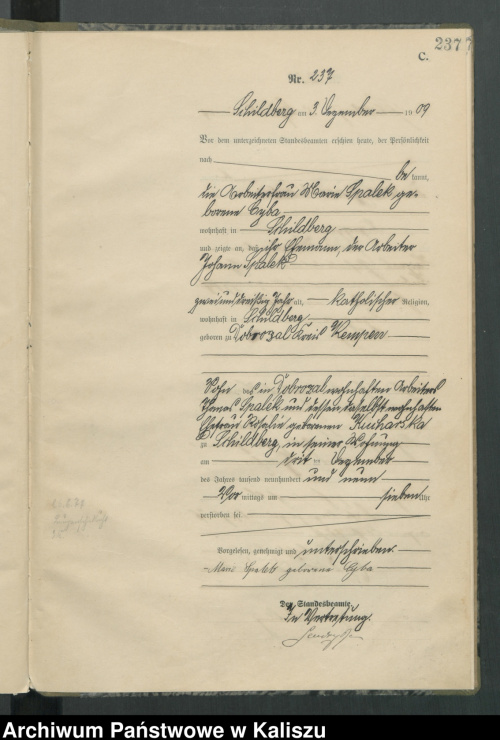 237
C.
Nr. 237
Schildberg am 3. Dezember 1909
Vor dem unterzeichneten Standesbeamten erschien heute, der Persönlichkeit
nach
be kannt,
die Arbeiterfrau Marie Spalek ge-
borene Cyba
wohnhaft in Schildberg
und zeigte an, daß ihr Ehemann, der Arbeiter
Johann Spalek
zweiunddreißig Jahr alt, katholischer Religion,
wohnhaft in Schildberg
geboren zu Kreis Kempen
Sohn des in wohnhaften Arbeiters
Thomas Spalek und dessen daselbst wohnhaften
Ehefrau geborenen Kucharska
zu Schildberg, in seiner Wohnung
am drit ten Dezember
des Jahres tausend neunhundert und neun
Vor mittags um sieben Uhr
verstorben sei.
Vorgelesen, genehmigt und unterschrieben.
Marie Spalek geborene Cyba
Der Standesbeamte.
In Vertretung.
Archiwum Państwowe w Kaliszu